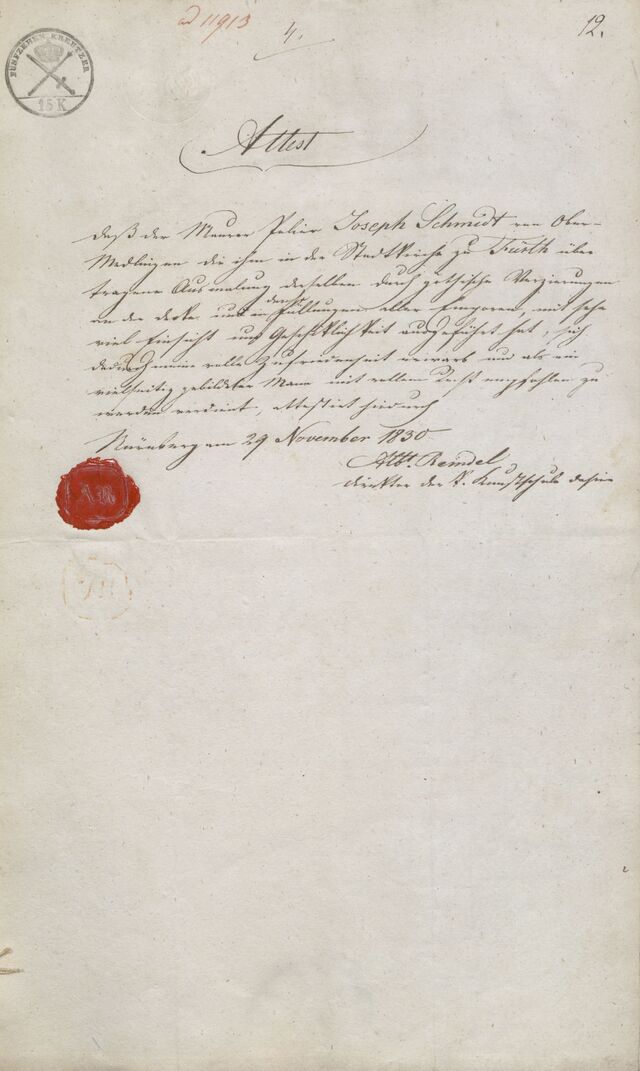 ad 11913
4.
12.
FÜNFZEHEN KREUTZER
15 K
Attest
daß der Maurer Polier Joseph Schmidt von Ober-
Medlingen die ihm in der Stadtkirche zu Fürth über
tragene Ausmalung derselben durch gothische Verzierungen
an der Decke und in den Füllungen aller Emporen, mit sehr
viel Einsicht und Geschiklichkeit ausgeführt hat, sich
dadurch meine volle Zufriedenheit erwarb und als ein
vielseitig gebildeter Mann mit vollem Recht empfohlen zu
werden verdient, attestirt hiedurch
Nürnberg am 29 November 1830
Albt. Reindel
Direktor der k. Kunstschule dahier
AR